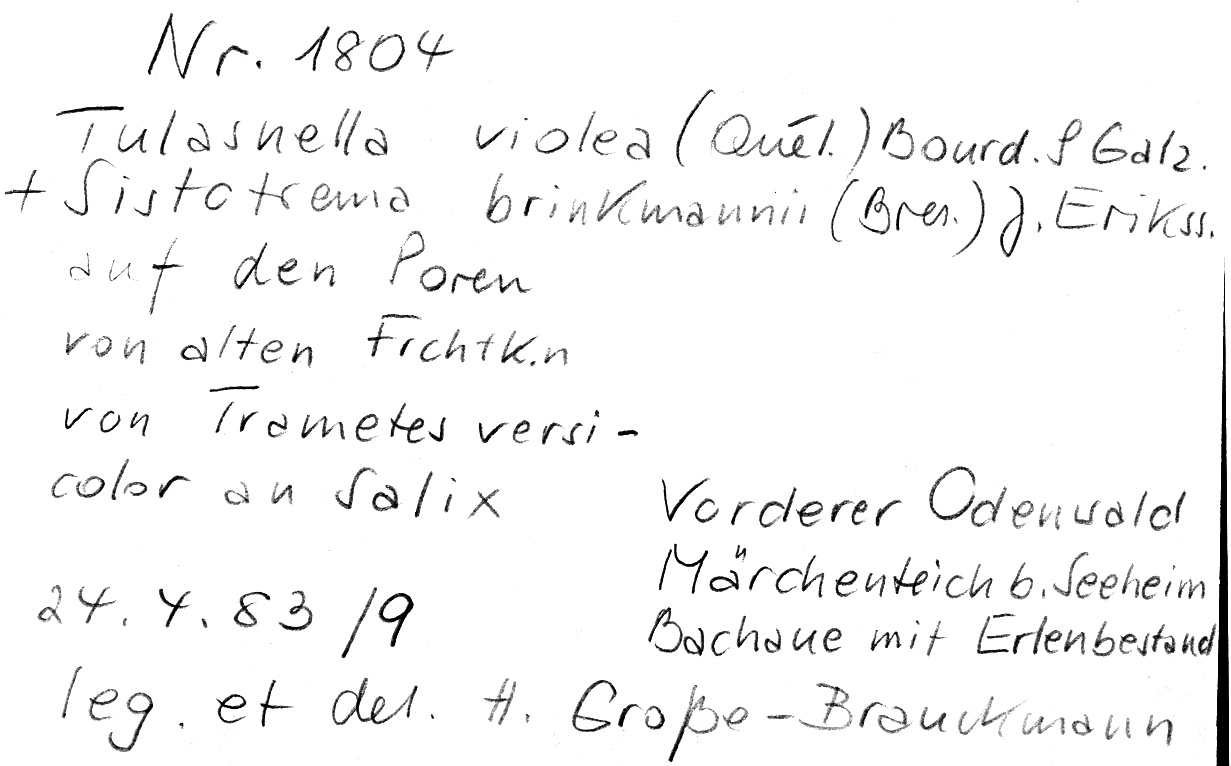 Nr. 1804
Tulasnella violea (Quél.) Bourd. & Galz.
+ Sistotrema brinkmannii (Bres.) J. Erikss.
auf den Poren
von alten Frchtk.n
von Trametes versi-
color an Salix
Vorderer Odenwald
Märchenteich b. Seeheim
Bachaue mit Erlenbestand
24.4.83 /9
leg. et det. H. Große-Brauckmann